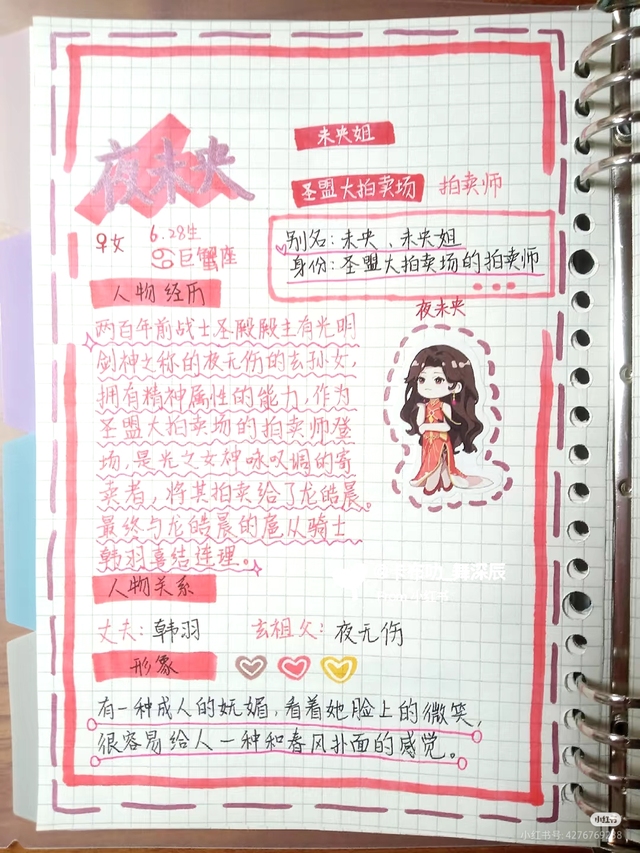 夜未央
未央姐
圣盟大拍卖场 拍卖师
♀女 6.28生
♋巨蟹座
别名:未央、未央姐
身份:圣盟大拍卖场的拍卖师
人物经历
夜未央
两百年前战士圣殿殿主有光明
剑神之称的夜无伤的玄孙女,
拥有精神属性的能力,作为
圣盟大拍卖场的拍卖师登
场,是光之女神咏叹调的寄
卖者,将其拍卖给了龙皓晨。
最终与龙皓晨的扈从骑士
韩羽喜结连理。
人物关系
丈夫:韩羽 玄祖父:夜无伤
形象
有一种成人的妩媚,看着她脸上的微笑,
很容易给人一种和春风扑面的感觉。
小红书
小红书号:4276769238